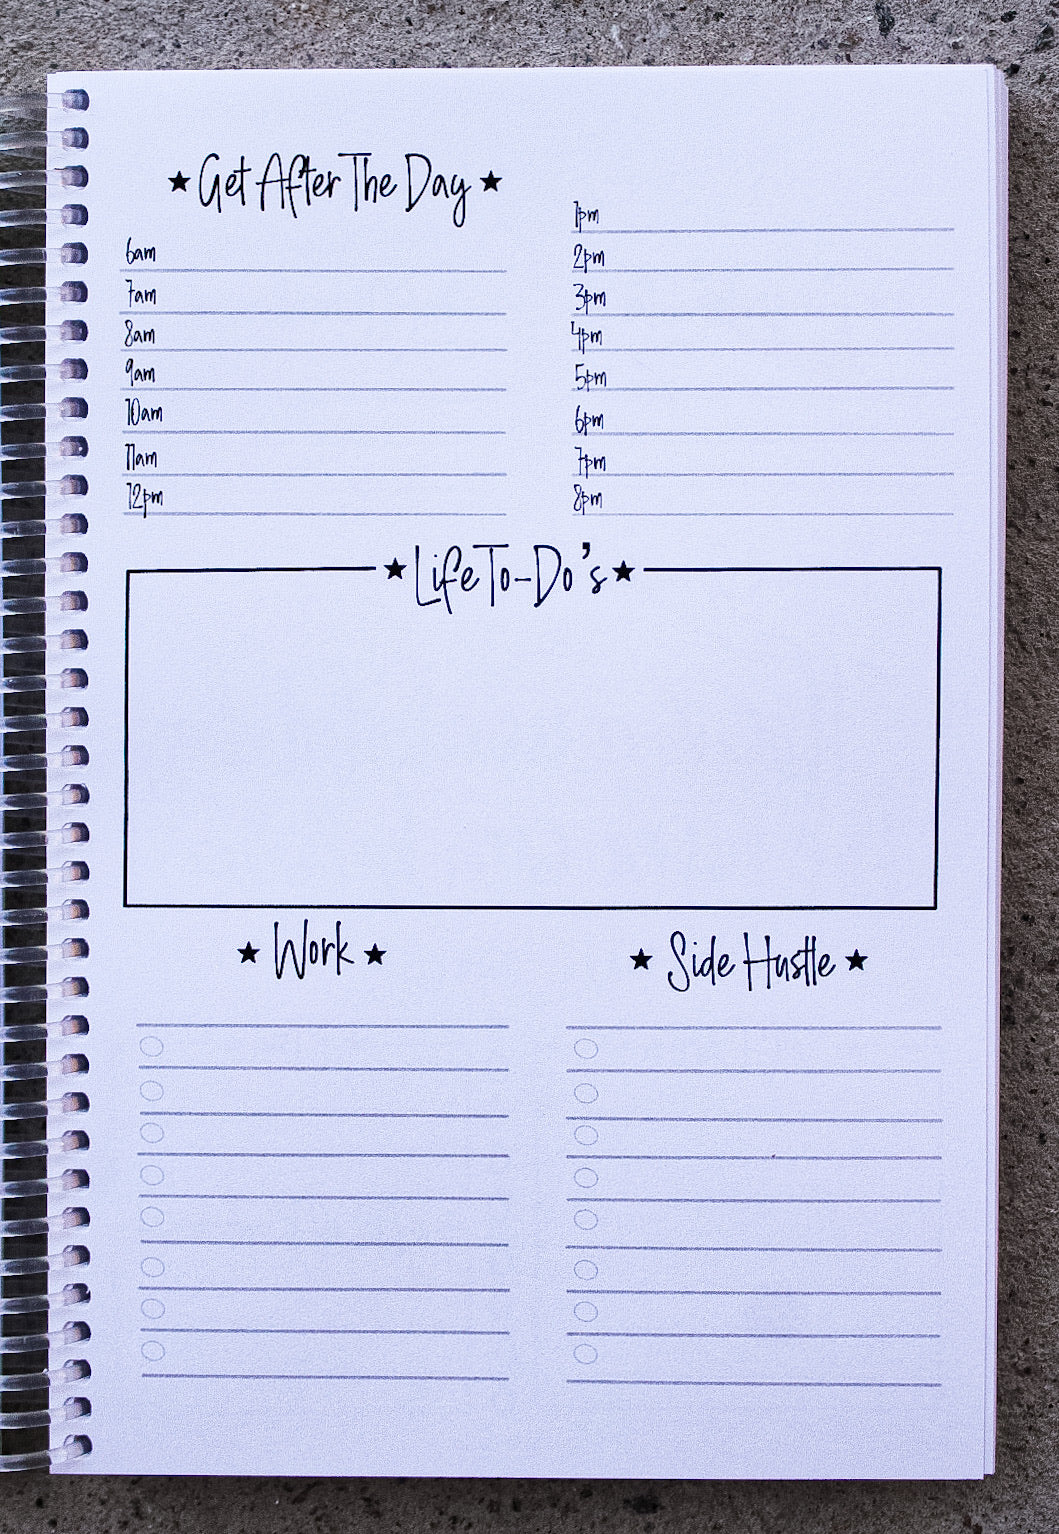 ★ Get After The Day ★
6am
7am
8am
9am
10am
11am
12pm
1pm
2pm
3pm
4pm
5pm
6pm
7pm
8pm
★ Life To-Do's ★
★ Work ★
★ Side Hustle ★